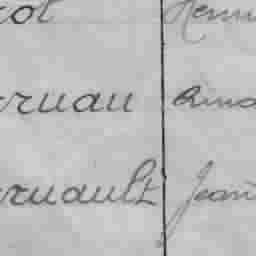 rot Henri
rruau Arma
rruault Jean